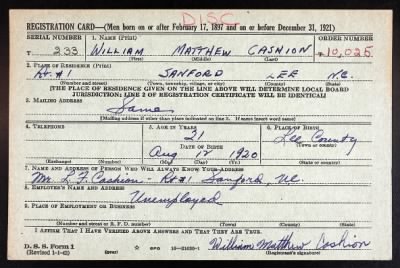 DISC
REGISTRATION CARD—(Men born on or after February 17, 1897 and on or before December 31, 1921)
SERIAL NUMBER 1. NAME (Print) ORDER NUMBER
T 233 WILLIAM MATTHEW CASHION 10,025
(First) (Middle) (Last)
2. PLACE OF RESIDENCE (Print)
Rt. #1 SANFORD LEE N.C.
(Number and street) (Town, township, village, or city) (County) (State)
[THE PLACE OF RESIDENCE GIVEN ON THE LINE ABOVE WILL DETERMINE LOCAL BOARD
JURISDICTION; LINE 2 OF REGISTRATION CERTIFICATE WILL BE IDENTICAL]
3. MAILING ADDRESS
Same
[Mailing address if other than place indicated on line 2. If same insert word same]
4. TELEPHONE 5. AGE IN YEARS 6. PLACE OF BIRTH
21 Lee County
DATE OF BIRTH (Town or county)
Aug 12 1920
(Exchange) (Number) (Mo.) (Day) (Yr.) (State or country)
7. NAME AND ADDRESS OF PERSON WHO WILL ALWAYS KNOW YOUR ADDRESS
Mr. L. F. Cashion - Rt #1 Sanford, NC.
8. EMPLOYER'S NAME AND ADDRESS
Unemployed
9. PLACE OF EMPLOYMENT OR BUSINESS
(Number and street or R. F. D. number) (Town) (County) (State)
I AFFIRM THAT I HAVE VERIFIED ABOVE ANSWERS AND THAT THEY ARE TRUE.
D. S. S. Form 1 GPO William Matthew Cashion
(Revised 1-1-42) (Registrant's signature)